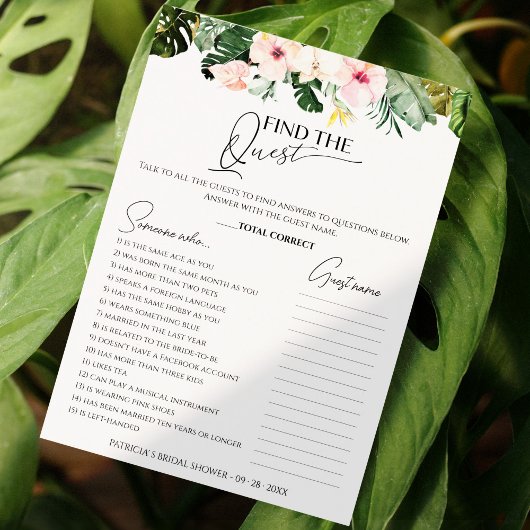 FIND THE
Quest
TALK TO ALL THE GUESTS TO FIND ANSWERS TO QUESTIONS BELOW.
ANSWER WITH THE GUEST NAME.
_____TOTAL CORRECT
Someone who...
Guest name
1) IS THE SAME AGE AS YOU
2) WAS BORN THE SAME MONTH AS YOU
3) HAS MORE THAN TWO PETS
4) SPEAKS A FOREIGN LANGUAGE
5) HAS THE SAME HOBBY AS YOU
6) WEARS SOMETHING BLUE
7) MARRIED IN THE LAST YEAR
8) IS RELATED TO THE BRIDE-TO-BE
9) DOESN'T HAVE A FACEBOOK ACCOUNT
10) HAS MORE THAN THREE KIDS
11) LIKES TEA
12) CAN PLAY A MUSICAL INSTRUMENT
13) IS WEARING PINK SHOES
14) HAS BEEN MARRIED TEN YEARS OR LONGER
15) IS LEFT-HANDED
PATRICIA'S BRIDAL SHOWER - 09 · 28 · 20XX